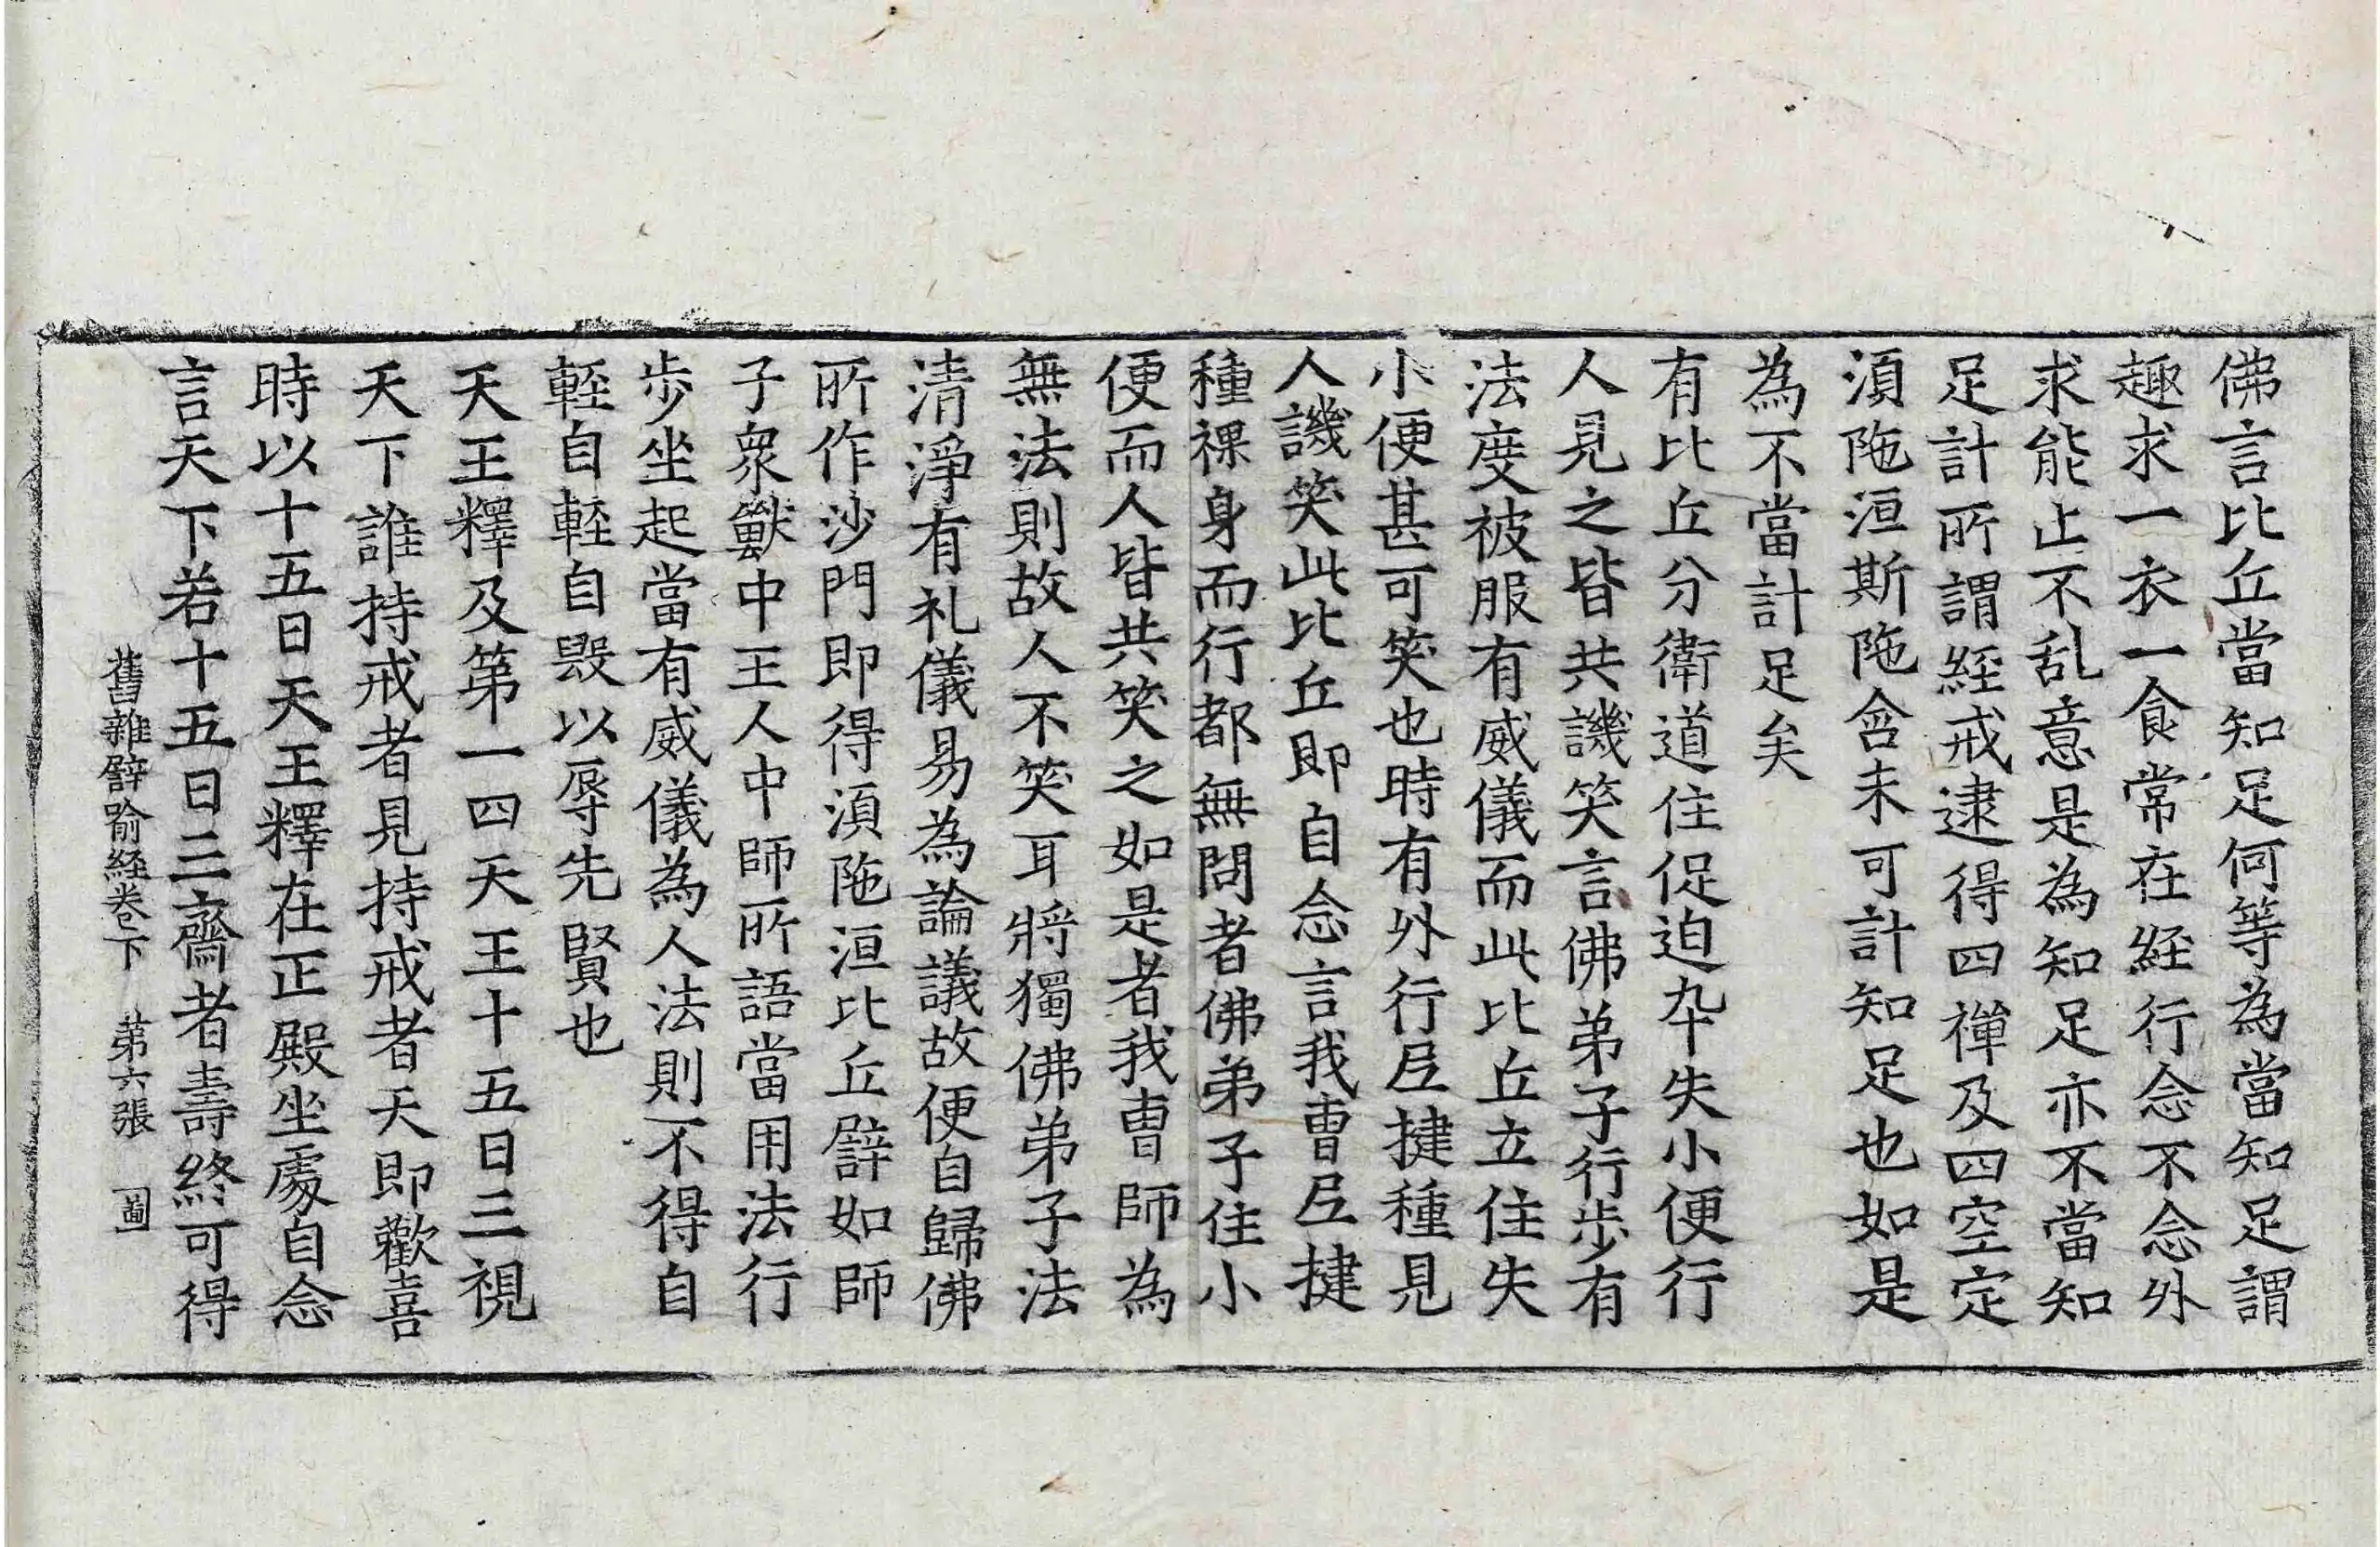 佛言比丘當知足何等為當知足謂
趣求一衣一食常在経行念不念外
求能止不乱意是為知足亦不當知
足計所謂経戒逮得四禪及四空定
湏陁洹斯陁含未可計知足也如是
為不當計足矣
有比丘分衛道住促迫卒失小便行
人見之皆共譏笑言佛弟子行步有
法度被服有威儀而此比丘立住失
小便甚可笑也時有外行𡰱揵種見
人譏笑此比丘即自念言我曺𡰱揵
種裸身而行都無問者佛弟子住小
便而人皆共笑之如是者我曺師為
無法則故人不笑耳將獨佛弟子法
清淨有礼儀易為論議故便自歸佛
所作沙門即得湏陁洹比丘譬如師
子衆獸中王人中師所語當用法行
步坐起當有威儀為人法則不得自
輕自輕自毀以辱先賢也
天王釋及第一四天王十五日三視
天下誰持戒者見持戒者天即歡喜
時以十五日天王釋在正殿坐處自念
言天下若十五日三齋者壽終可得
舊雜譬喻経卷下　第六張　啚